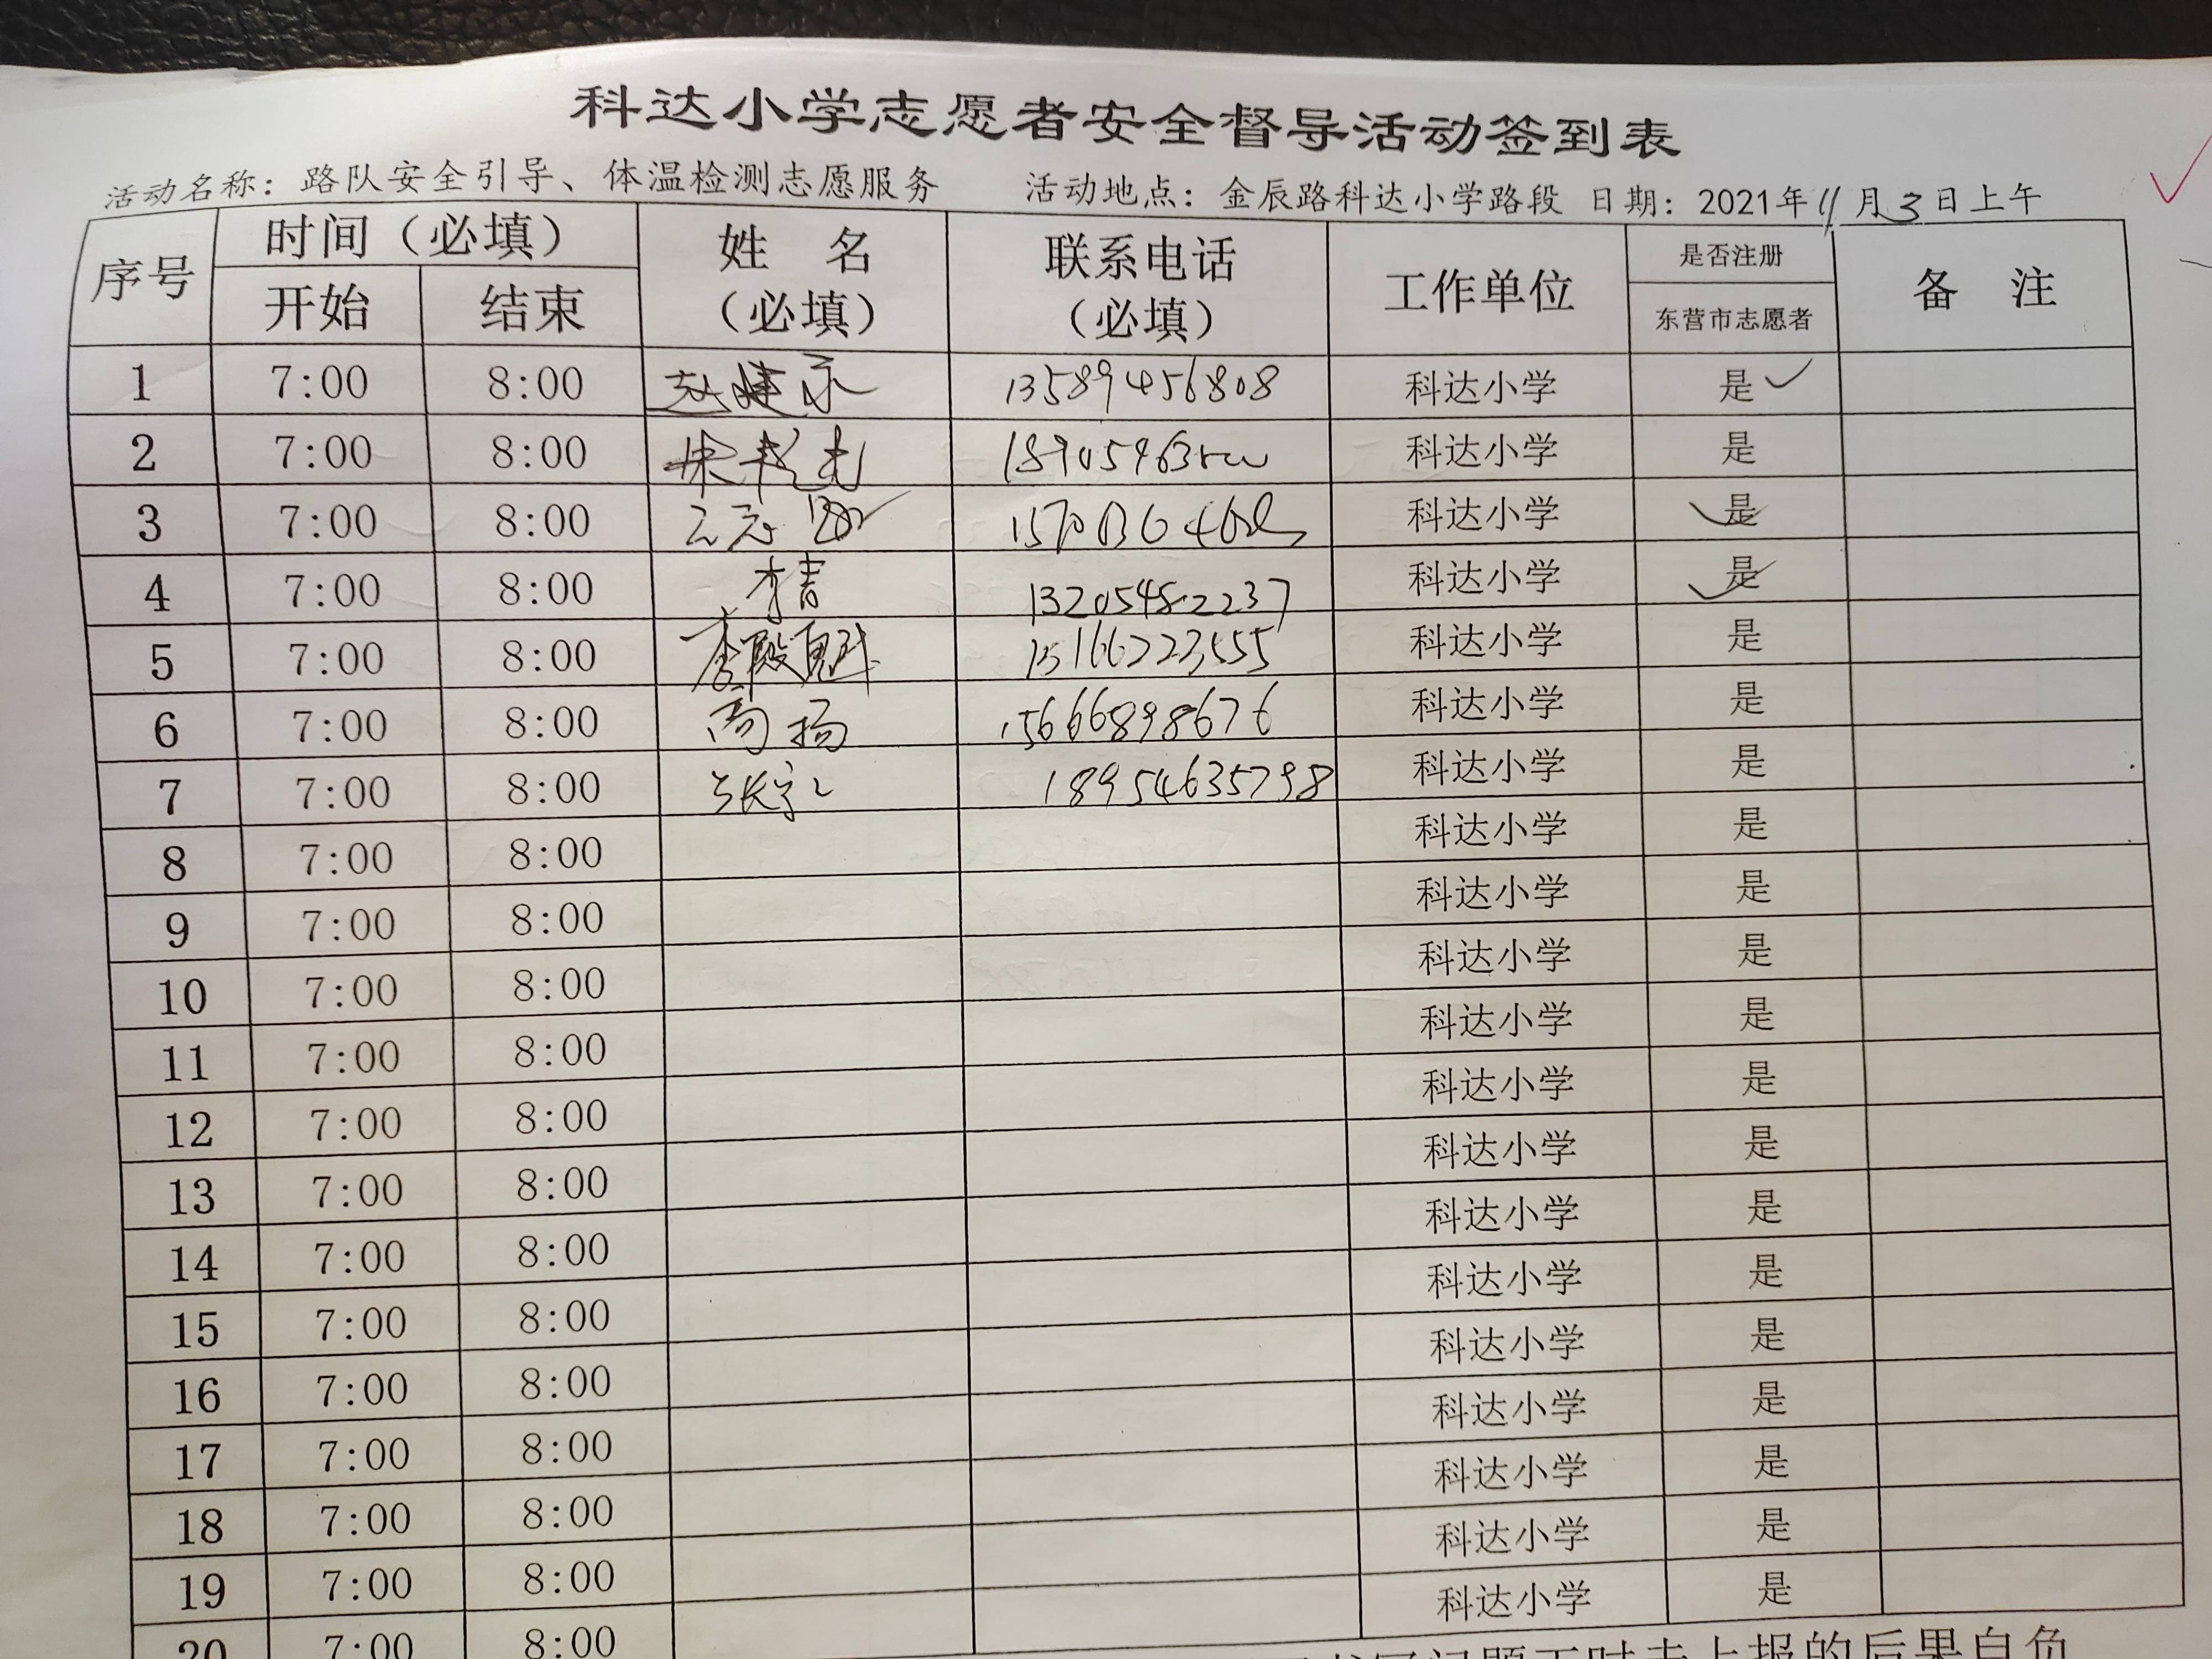 科达小学志愿者安全督导活动签到表
活动名称：路队安全引导、体温检测志愿服务 活动地点：金辰路科达小学路段 日期：2021年11月3日上午
序号 时间（必填） 姓 名（必填） 联系电话（必填） 工作单位 是否注册 备 注
开始 结束 东营市志愿者
1 7:00 8:00 13589456808 科达小学 是
2 7:00 8:00 科达小学 是
3 7:00 8:00 科达小学 是
4 7:00 8:00 13205482237 科达小学 是
5 7:00 8:00 李殿魁 15166223555 科达小学 是
6 7:00 8:00 高扬 15666898676 科达小学 是
7 7:00 8:00 18954635798 科达小学 是
8 7:00 8:00 科达小学 是
9 7:00 8:00 科达小学 是
10 7:00 8:00 科达小学 是
11 7:00 8:00 科达小学 是
12 7:00 8:00 科达小学 是
13 7:00 8:00 科达小学 是
14 7:00 8:00 科达小学 是
15 7:00 8:00 科达小学 是
16 7:00 8:00 科达小学 是
17 7:00 8:00 科达小学 是
18 7:00 8:00 科达小学 是
19 7:00 8:00 科达小学 是
20 7:00 8:00
上报的后果自负